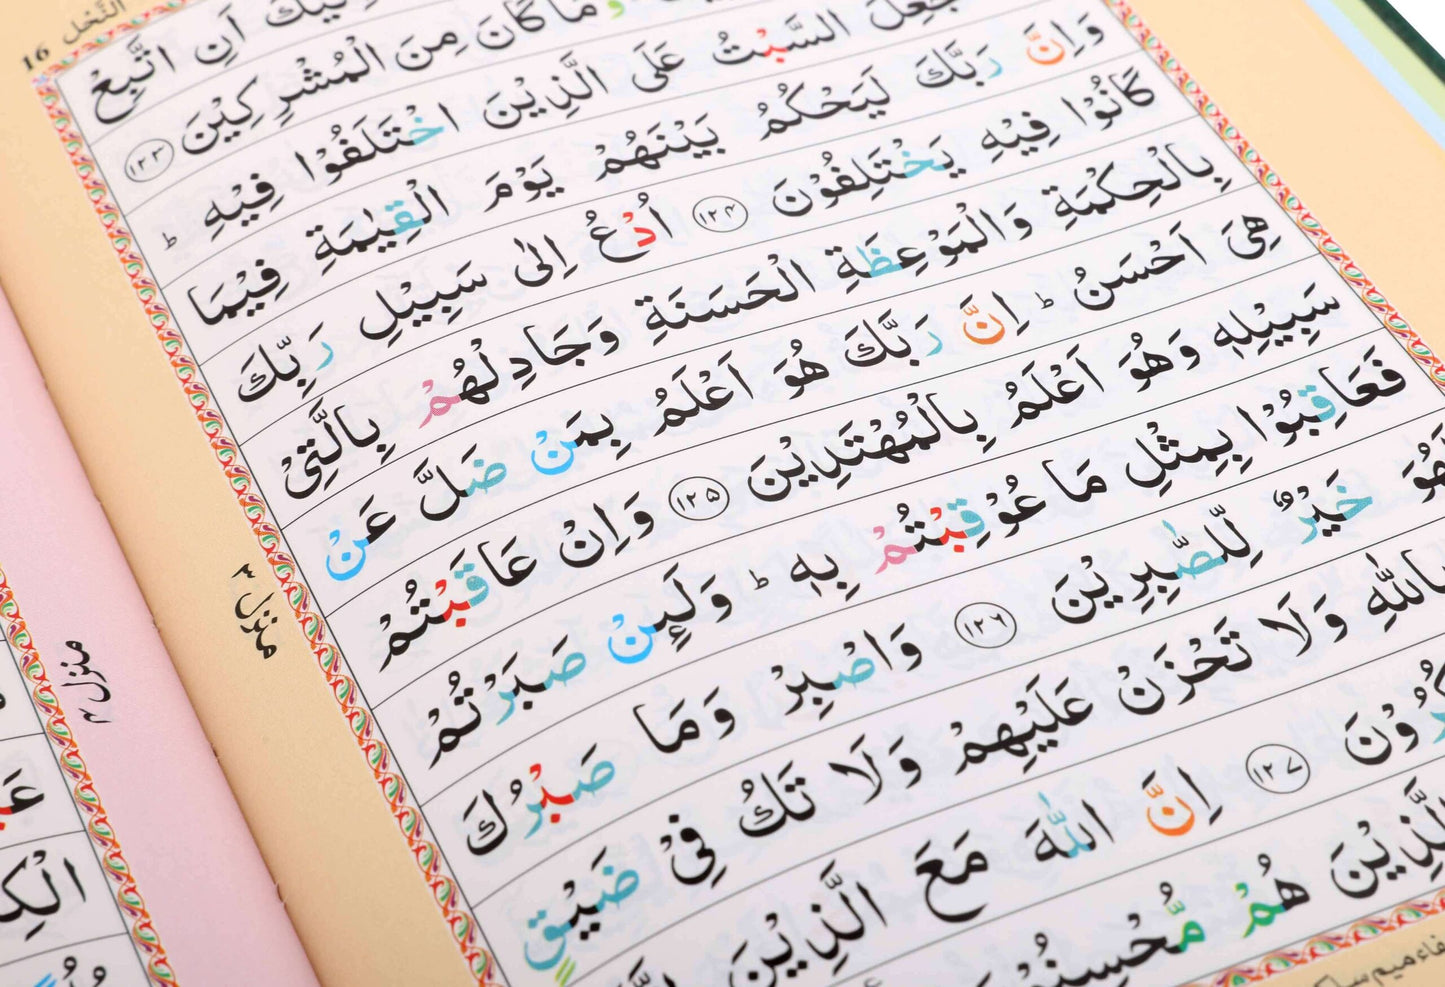 النَّحْل 16
اَنِ اتَّبِعْ
وَمَا كَانَ مِنَ الْمُشْرِكِيْنَ ١٢٣
جُعِلَ السَّبْتُ عَلَى الَّذِيْنَ اخْتَلَفُوْا فِيْهِ ؕ
وَاِنَّ رَبَّكَ لَيَحْكُمُ بَيْنَهُمْ يَوْمَ الْقِيٰمَةِ فِيْمَا
كَانُوْا فِيْهِ يَخْتَلِفُوْنَ ١٢٤ اُدْعُ اِلٰى سَبِيْلِ رَبِّكَ
بِالْحِكْمَةِ وَالْمَوْعِظَةِ الْحَسَنَةِ وَجَادِلْهُمْ بِالَّتِىْ
هِىَ اَحْسَنُ ؕ اِنَّ رَبَّكَ هُوَ اَعْلَمُ بِمَنْ ضَلَّ عَنْ
سَبِيْلِهٖ وَهُوَ اَعْلَمُ بِالْمُهْتَدِيْنَ ١٢٥ وَاِنْ عَاقَبْتُمْ
فَعَاقِبُوْا بِمِثْلِ مَا عُوْقِبْتُمْ بِهٖ ؕ وَلَىِٕنْ صَبَرْتُمْ
لَهُوَ خَيْرٌ لِّلصّٰبِرِيْنَ ١٢٦ وَاصْبِرْ وَمَا صَبْرُكَ
بِاللّٰهِ وَلَا تَحْزَنْ عَلَيْهِمْ وَلَا تَكُ فِىْ ضَيْقٍ
١٢٧ اِنَّ اللّٰهَ مَعَ الَّذِيْنَ
الَّذِيْنَ هُمْ مُّحْسِنُوْنَ
منزل ٣
منزل ٣